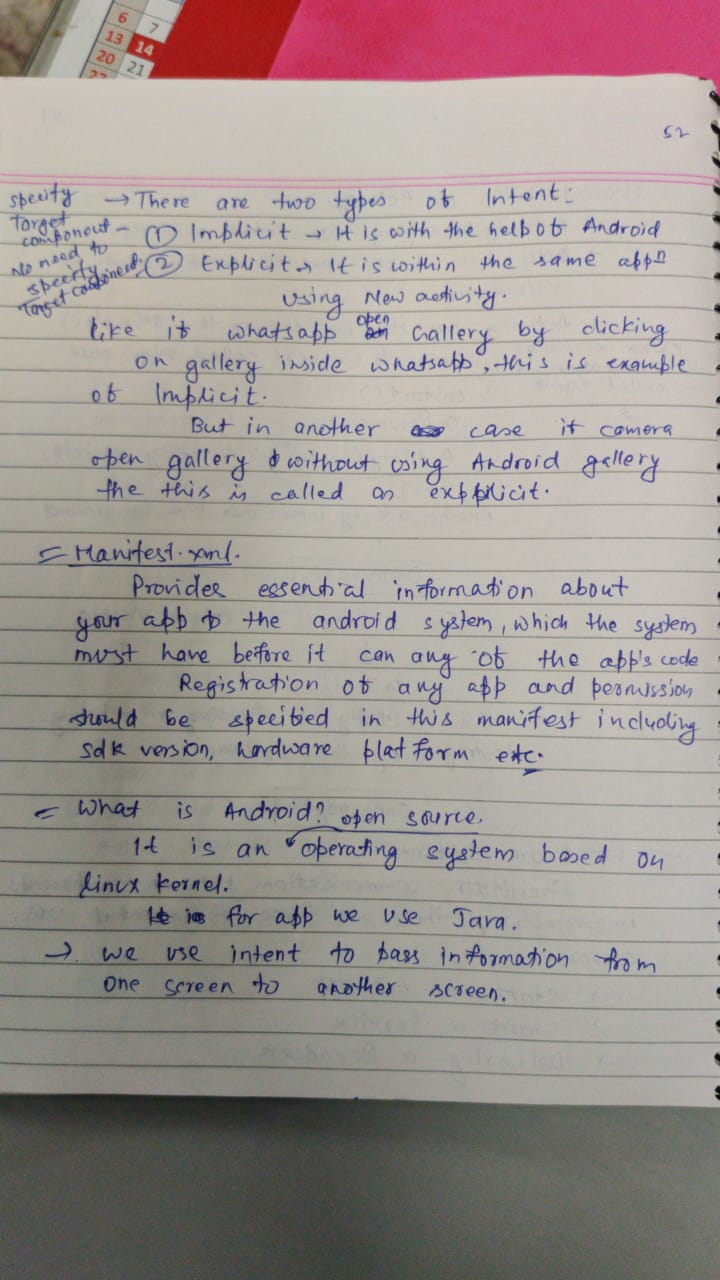 6
7
13
14
20
21
27
52
specify
Target
component -
No need to
specify
Target component.
→ There are two types of Intent:
① Implicit → It is with the help of Android
② Explicit → It is within the same appn
using New activity.
like if whatsapp open Gallery by clicking
on gallery inside whatsapp, this is example
of Implicit.
But in another case if camera
open gallery without using Android gallery
the this is called as expplicit.
= Manifest.xml.
Provides essential information about
your app to the android system, which the system
must have before it can any of the app's code
Registration of any app and permission
should be specified in this manifest including
sdk version, hardware platform etc.
= What is Android? open source.
It is an operating system based on
linux kernel.
It is for app we use Java.
→ we use intent to pass information from
one screen to another screen.